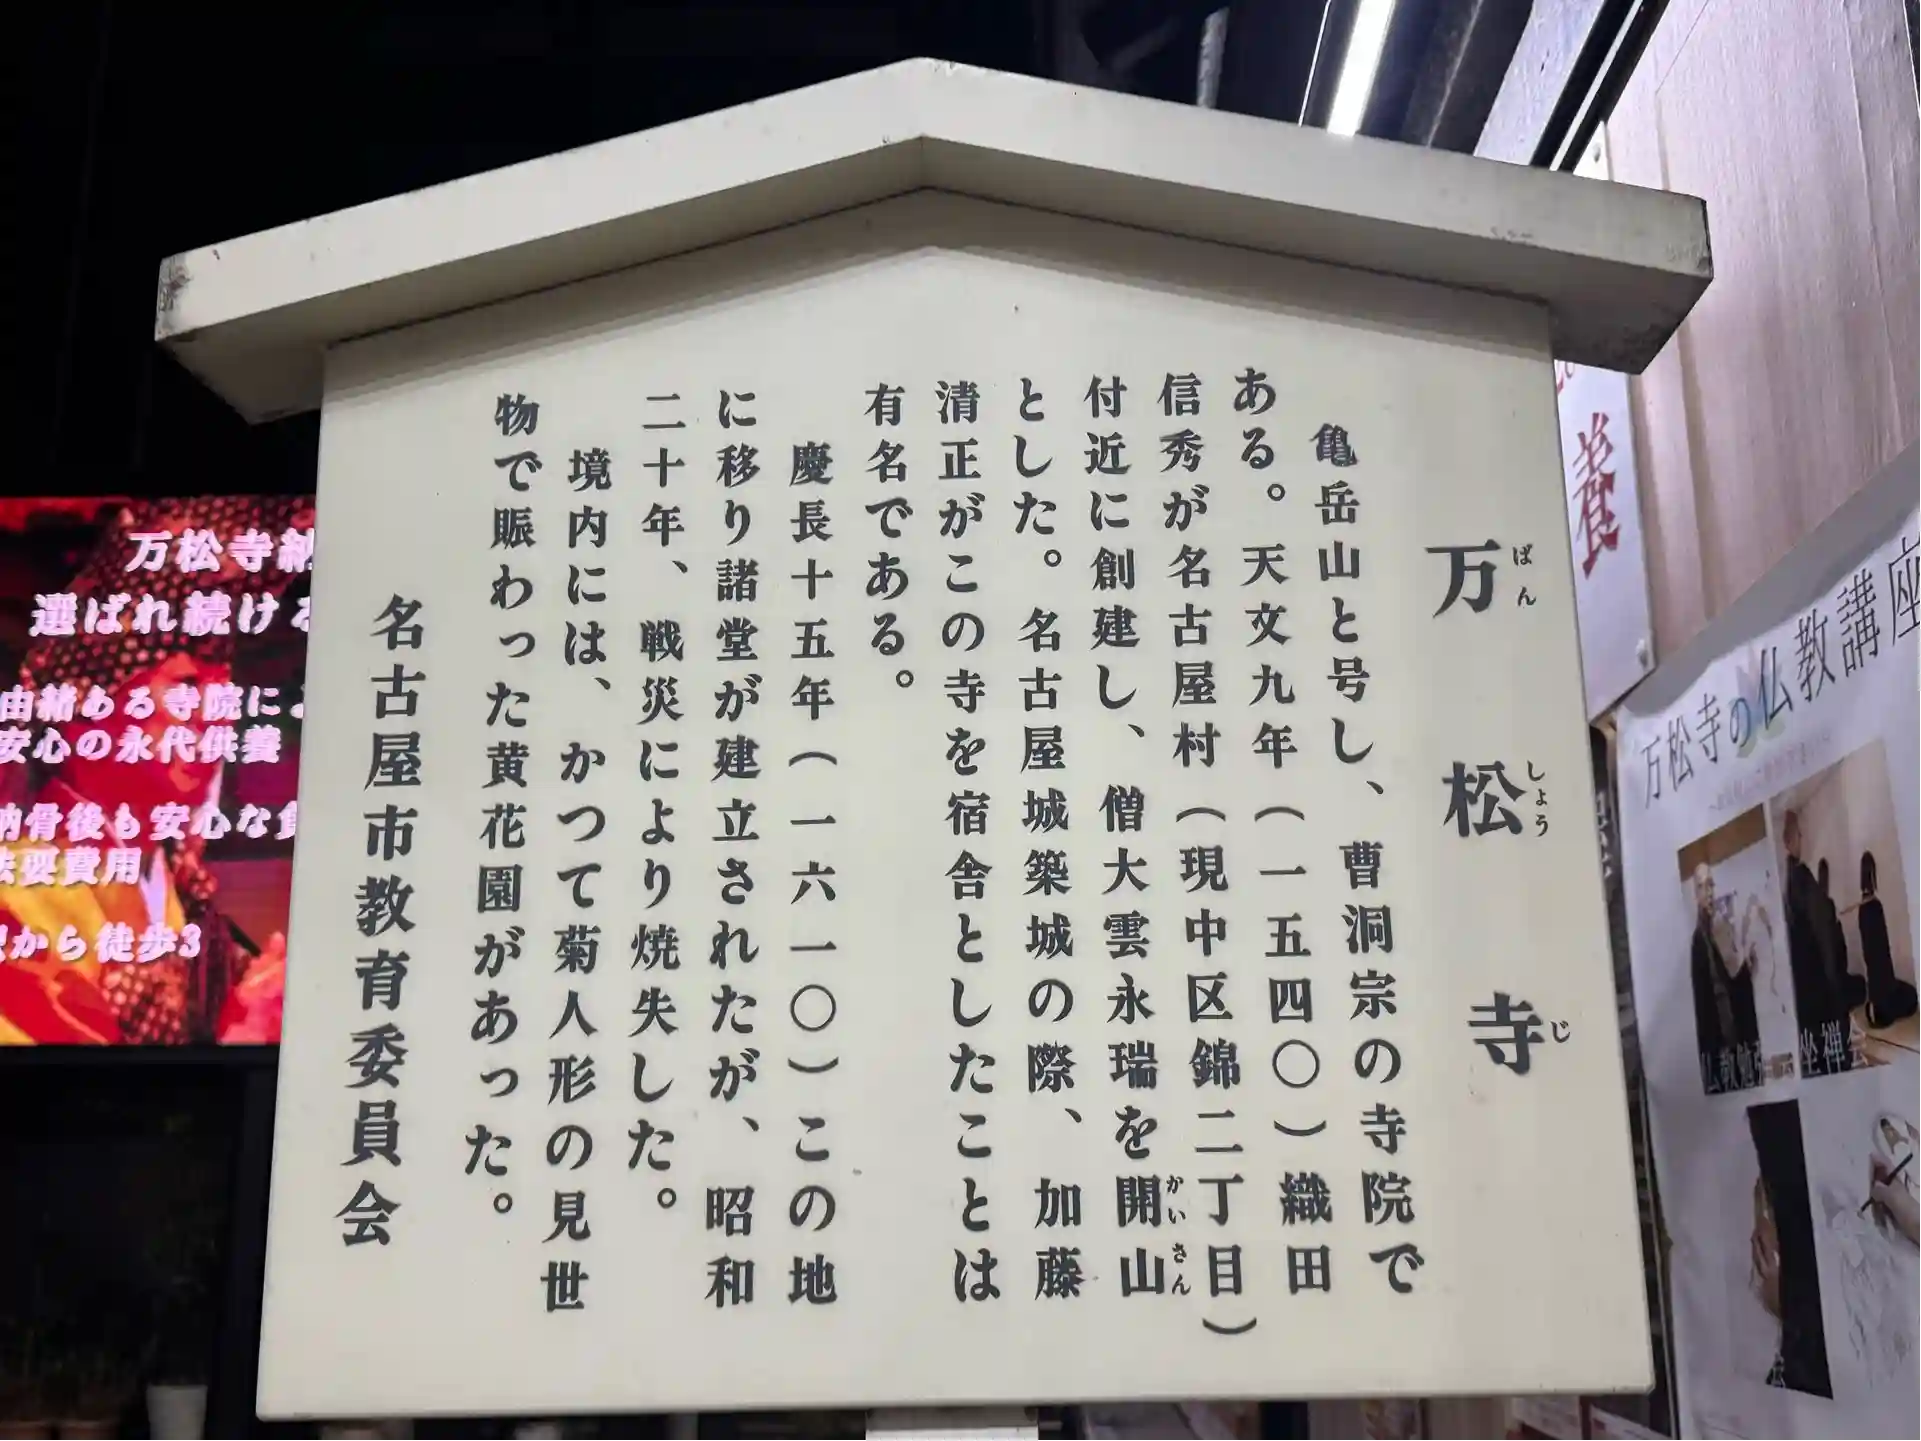 万松寺
ばんしょうじ
亀岳山と号し、曹洞宗の寺院で
ある。天文九年（一五四〇）織田
信秀が名古屋村（現中区錦二丁目）
付近に創建し、僧大雲永瑞を開山
かいさん
とした。名古屋城築城の際、加藤
清正がこの寺を宿舎としたことは
有名である。
慶長十五年（一六一〇）この地
に移り諸堂が建立されたが、昭和
二十年、戦災により焼失した。
境内には、かつて菊人形の見世
物で賑わった黄花園があった。
名古屋市教育委員会
万松寺納
選ばれ続ける
由緒ある寺院によ
安心の永代供養
納骨後も安心な
法要費用
から徒歩3
養
万松寺の仏教講座
仏教勉強
坐禅会